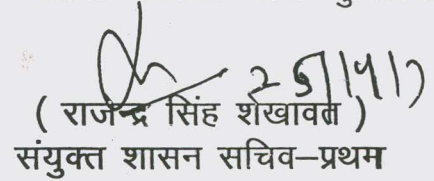 ( राजेन्द्र सिंह शेखावत )
संयुक्त शासन सचिव–प्रथम